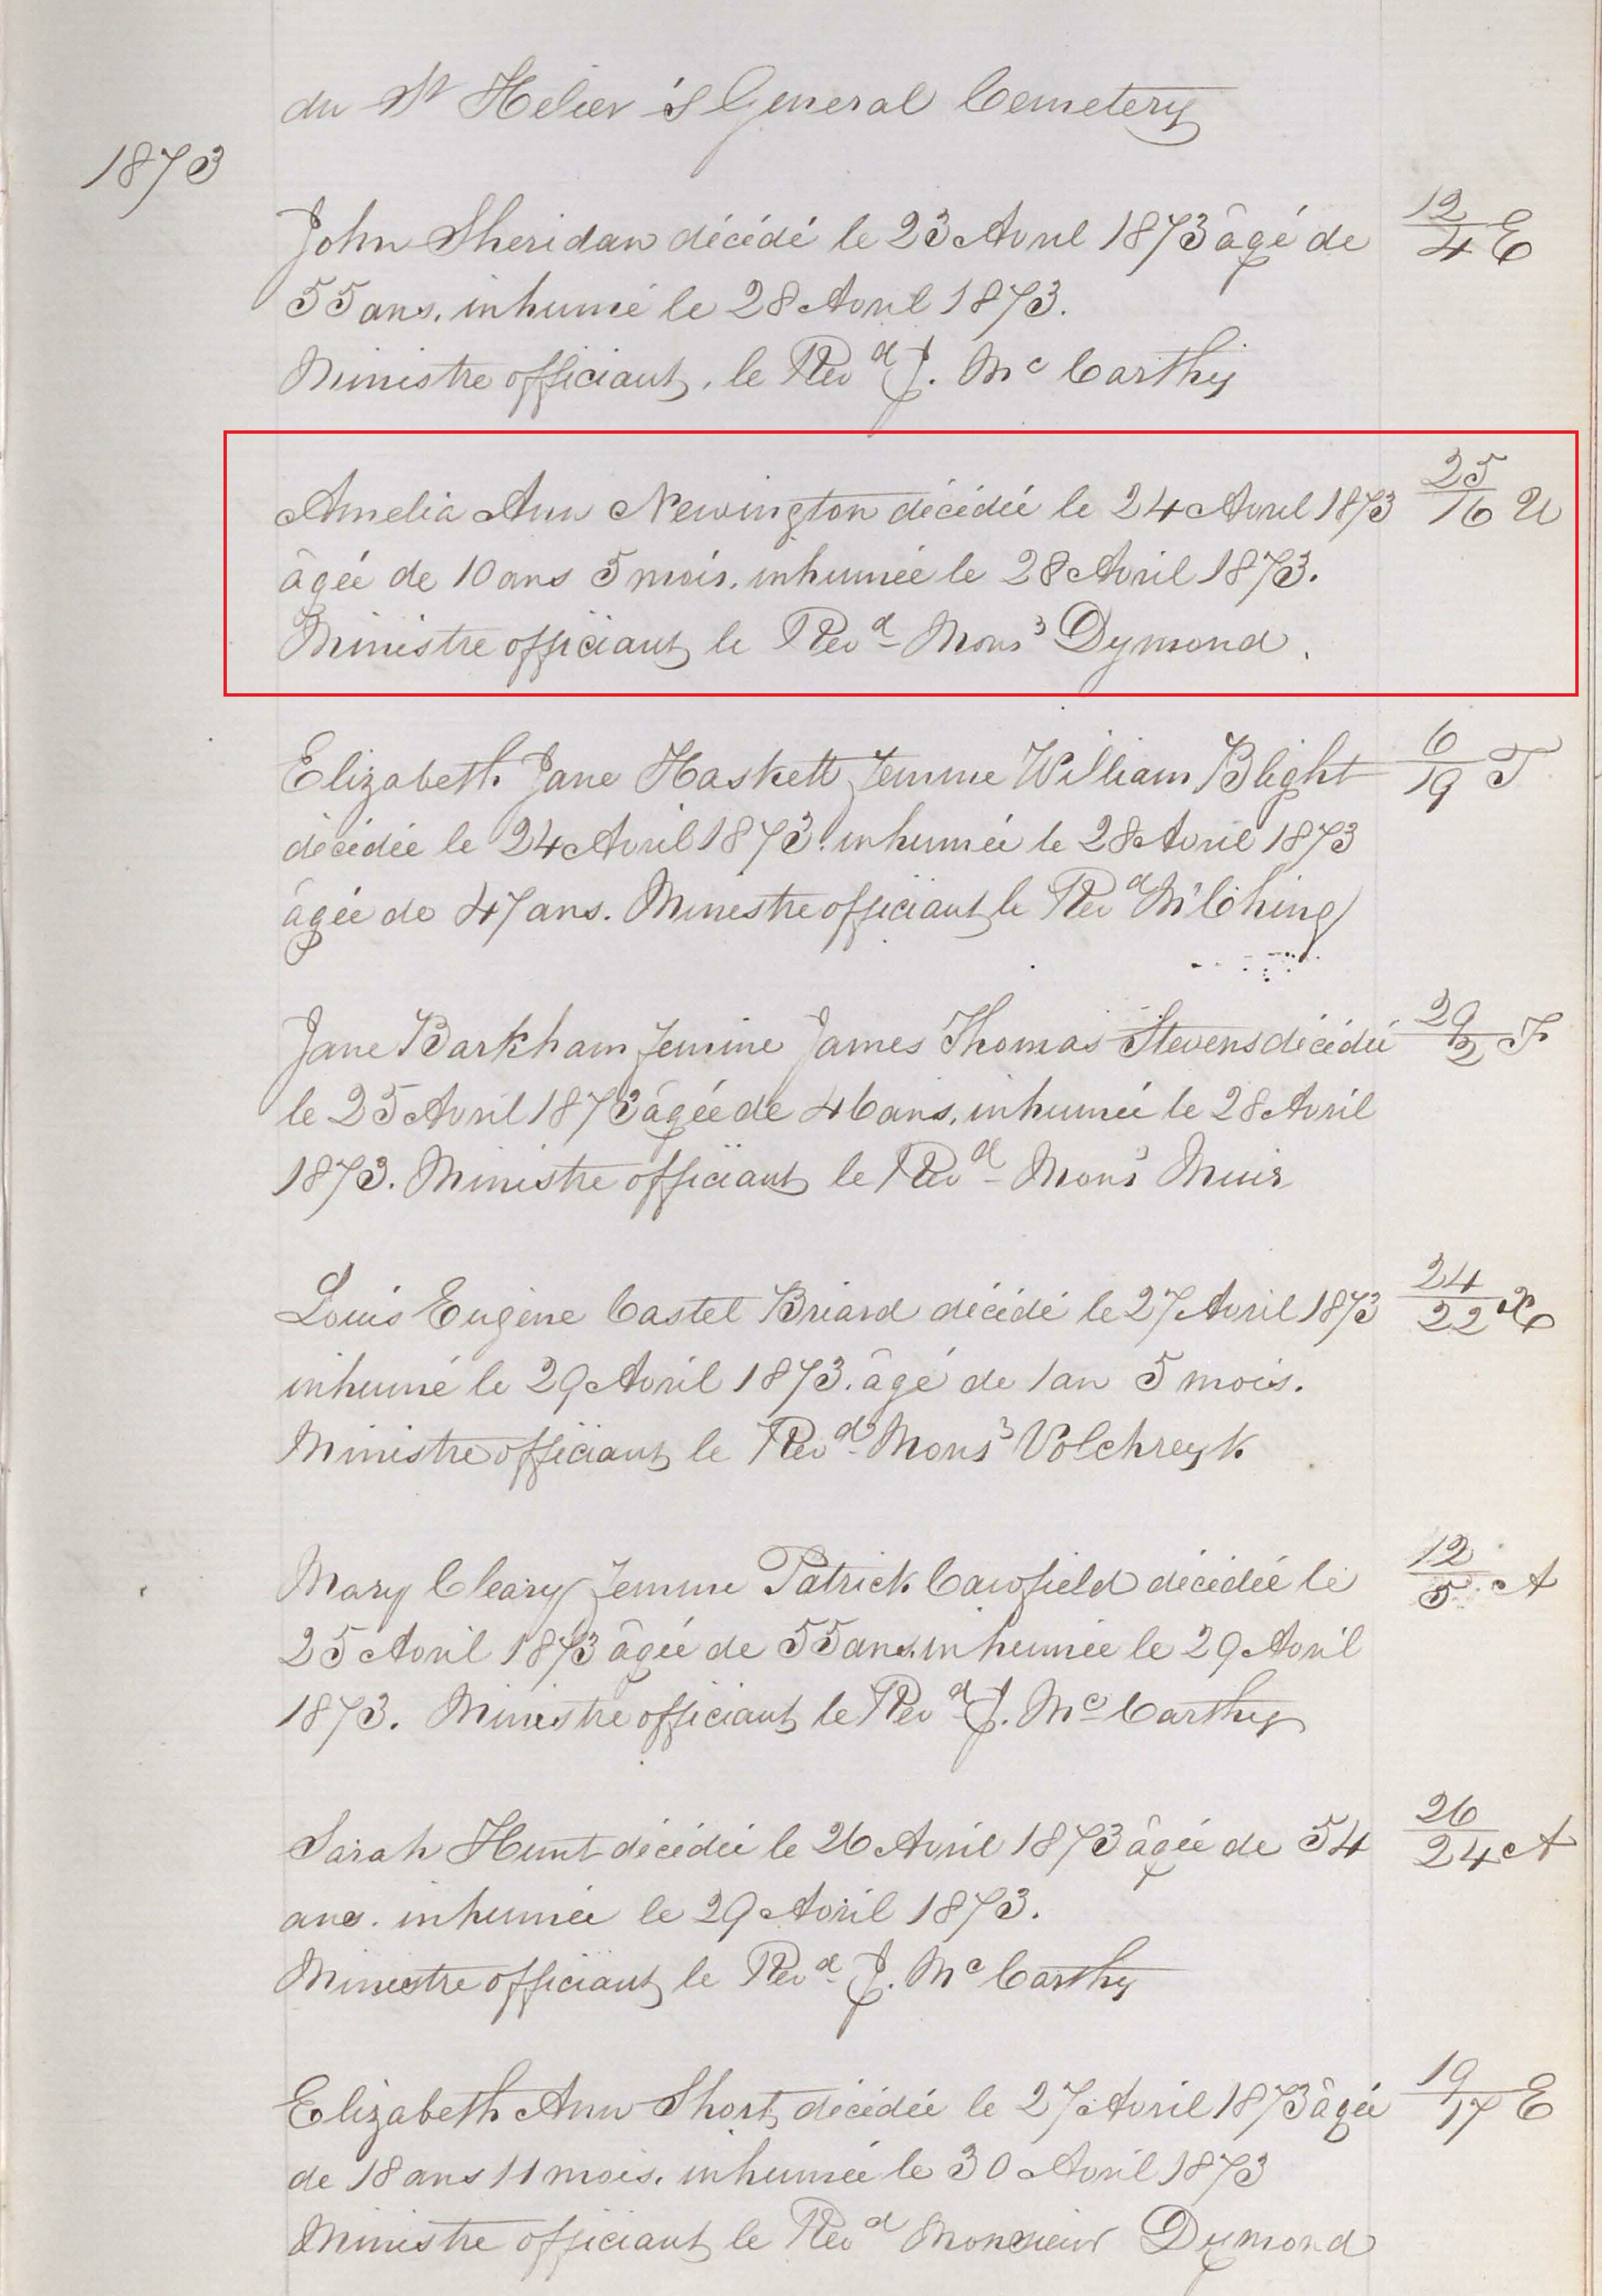 du St Helier's General Cemetery
1873
John Sheridan décédé le 23 Avril 1873 âgé de 12/4 E
55 ans. inhumé le 28 Avril 1873.
Ministre officiant, le Revd J. Mc Carthy
Amelia Ann Newington décédée le 24 Avril 1873 25/16 U
âgée de 10 ans 5 mois. inhumée le 28 Avril 1873.
Ministre officiant le Revd Monsr Dymond.
Elizabeth Jane Haskett femme William Blight 6/19 T
décédée le 24 Avril 1873. inhumée le 28 Avril 1873
âgée de 47 ans. Ministre officiant le Revd
Jane Barkham femme James Thomas Stevens décédée 29/2 F
le 25 Avril 1873 âgée de 46 ans, inhumée le 28 Avril
1873. Ministre officiant le Revd Monsr Muir
Louis Eugène Castel Briard décédé le 27 Avril 1873 24/22
inhumé le 29 Avril 1873. âgé de 1 an 5 mois.
Ministre officiant le Revd Monsr Volchreyk
Mary Cleary femme Patrick Cawfield décédée le 12/5 A
25 Avril 1873 âgée de 55 ans. inhumée le 29 Avril
1873. Ministre officiant le Revd J. Mc Carthy
Sarah Hunt décédée le 26 Avril 1873 âgée de 54 26/24 A
ans. inhumée le 29 Avril 1873.
Ministre officiant le Revd J. Mc Carthy
Elizabeth Ann Short décédée le 27 Avril 1873 âgée 19/17 E
de 18 ans 11 mois. inhumée le 30 Avril 1873
Ministre officiant le Revd Monsieur Dymond